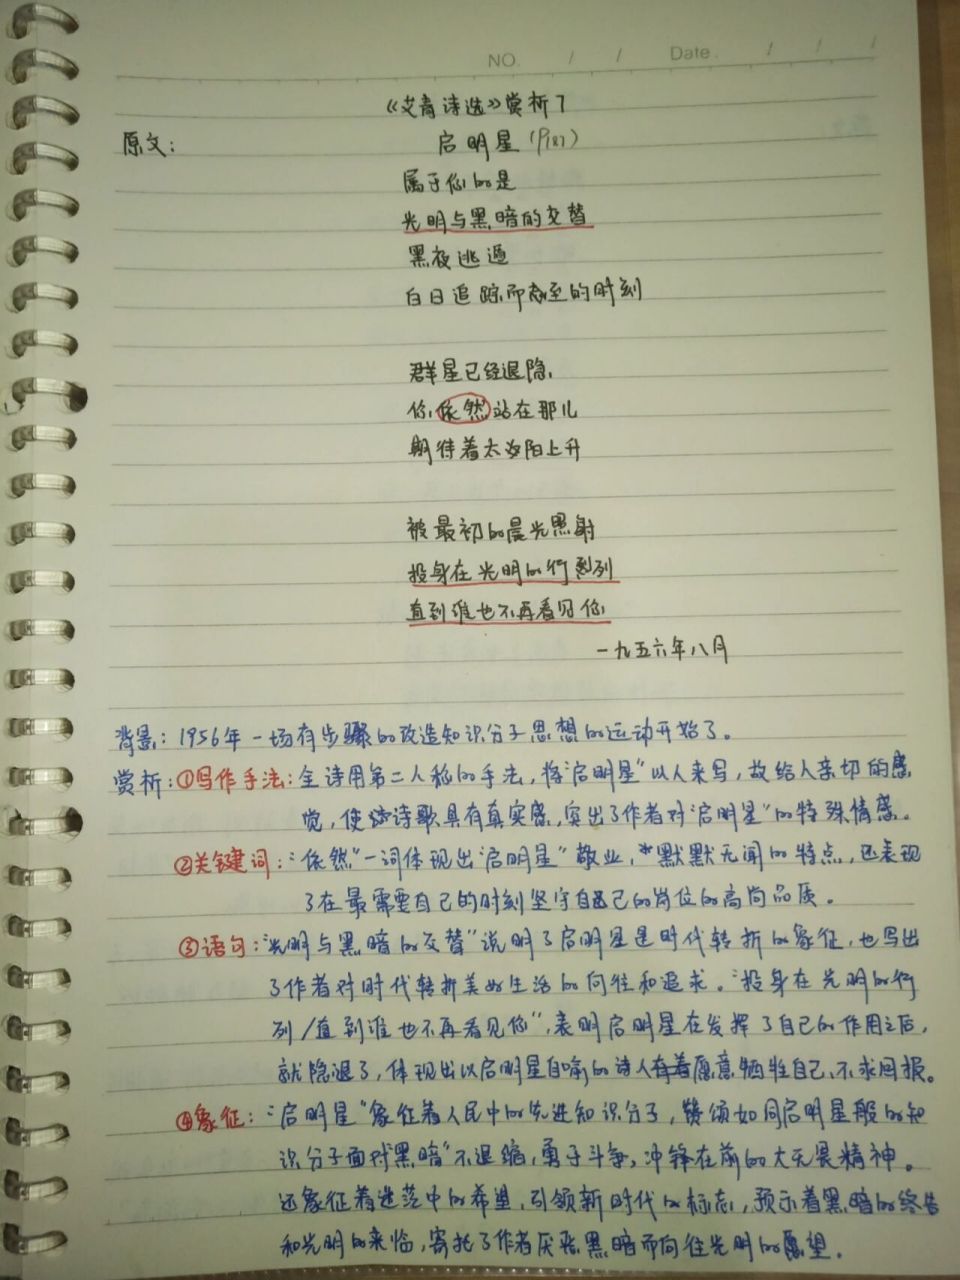 NO. / / Date. / / /
《艾青诗选》赏析7
原文: 启明星(P181)
属于你的是
光明与黑暗的交替
黑夜逃遁
白日追踪而至的时刻
群星已经退隐
你依然站在那儿
期待着太阳上升
被最初的晨光照射
投身在光明的行列
直到谁也不再看见你
一九五六年八月
背景:1956年一场有步骤的改造知识分子思想的运动开始了。
赏析:①写作手法:全诗用第二人称的手法,将“启明星”以人来写,故给人亲切的感
觉,使诗歌具有真实感,突出了作者对“启明星”的特殊情感。
②关键词:“依然”一词体现出“启明星”敬业,默默无闻的特点,还表现
了在最需要自己的时刻坚守自己的岗位的高尚品质。
③语句:“光明与黑暗的交替”说明了启明星是时代转折的象征,也写出
了作者对时代转折美好生活的向往和追求。“投身在光明的行
列/直到谁也不再看见你”,表明启明星在发挥了自己的作用之后,
就隐退了,体现出以启明星自喻的诗人愿意牺牲自己,不求回报。
④象征:“启明星”象征着人民中的先进知识分子,赞颂如同启明星般的知
识分子面对“黑暗”不退缩,勇于斗争,冲锋在前的大无畏精神。
还象征着迷茫中的希望,引领新时代的标志,预示着黑暗的终告
和光明的来临,寄托了作者厌恶黑暗而向往光明的愿望。